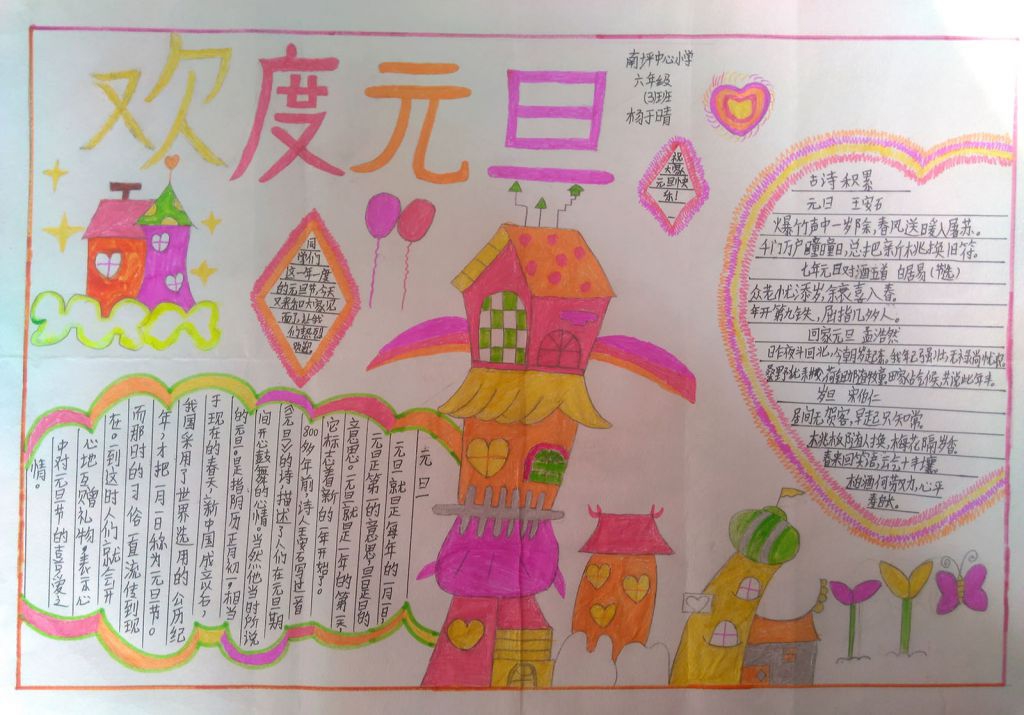 欢度元旦
南坪中心小学
六年级
(3)班
杨于晴
祝
大家
元旦快
乐！
同
学们
这一年一度
的元旦节,今天
又来和大家见
面了,让我
们热烈
欢迎。
古诗积累
元日 王安石
爆竹声中一岁除,春风送暖入屠苏。
千门万户曈曈日,总把新桃换旧符。
七年元日对酒五首 白居易(节选)
众老忧添岁,余衰喜入春。
年开第九秩,屈指几多人。
田家元旦 孟浩然
昨夜斗回北,今朝岁起东。我年已强仕,无禄尚忧农。
岁旦 宋伯仁
居间无贺客,早起只如常。
桃板随人换,梅花隔岁香。
春来回笑语,
柏酒何劳力,心平
寿自长。
元旦
元旦就是每年的一月一日,
元旦是第一的意思,旦是日的
意思。元旦就是一年的第一天,
它标志着新的一年开始了。
800多年前,诗人王安石写过一首
《元旦》的诗描述了人们在元旦期
间开心鼓舞的心情。当然他当时所说
的元旦。是指阴历正月初一。相当
于现在的春天,新中国成立以后,
我国采用了世界选用的公历纪
年,才把一月一日称为元旦节。
而那时的习俗一直流传到现
在。到这时人们就会开
心地互赠礼物。表示心
中对元旦节的喜爱之
情。